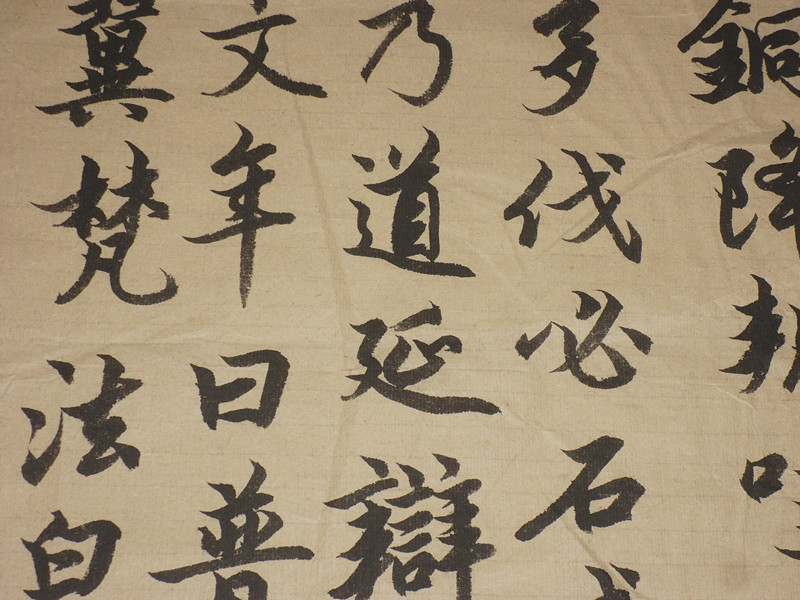 銅降
多伐必石
乃道延辯
文年曰普
冀梵法白